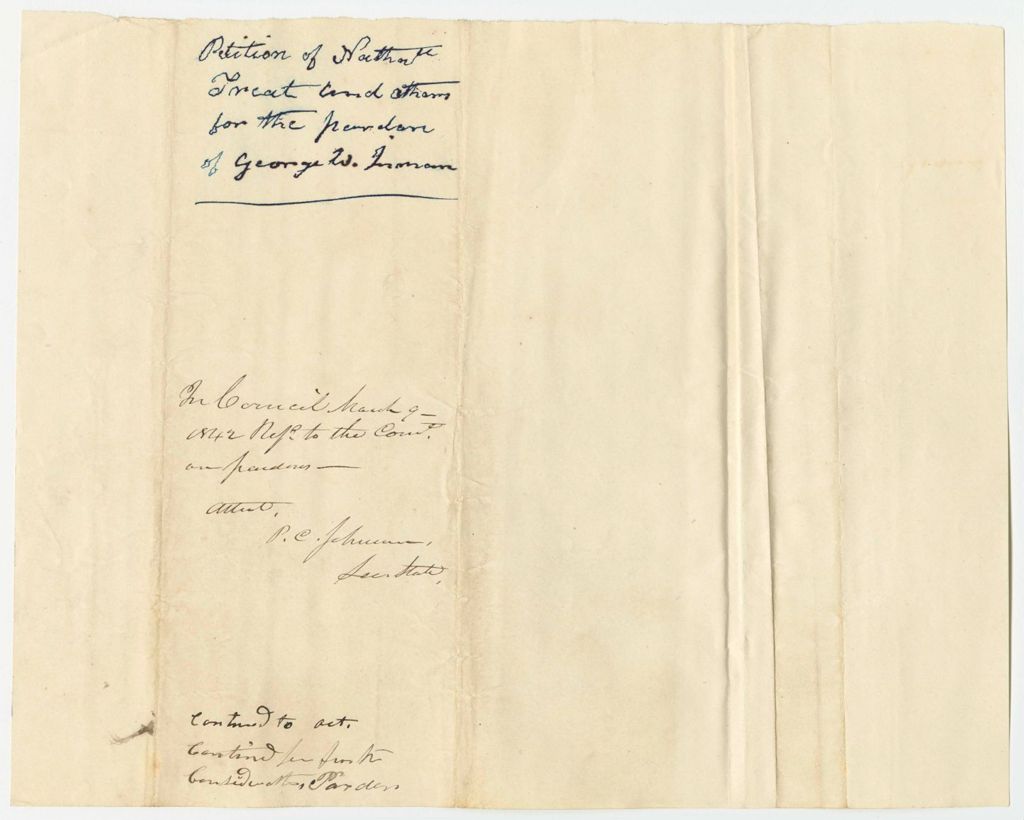 Petition of Nathll
Treat and others
for the pardon
of George W. Inman
In Council March 9-
1842 Refd. to the Comt.
on pardons —
Attest,
P. C. Johnson,
Sec. State,
Continud to oct.
Contind for furth
Consideration Pardon